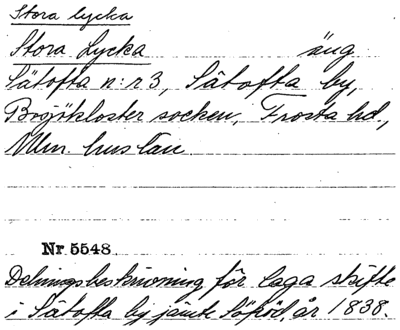 Stora lycka
Stora Lycka äng
Sätofta n:r 3, Sätofta by,
Bosjökloster socken, Frosta hd.,
Mlm. hus län
Nr 5548
Delningsbeskrivning för laga skifte
i Sätofta by jämte Söröd, år 1838.